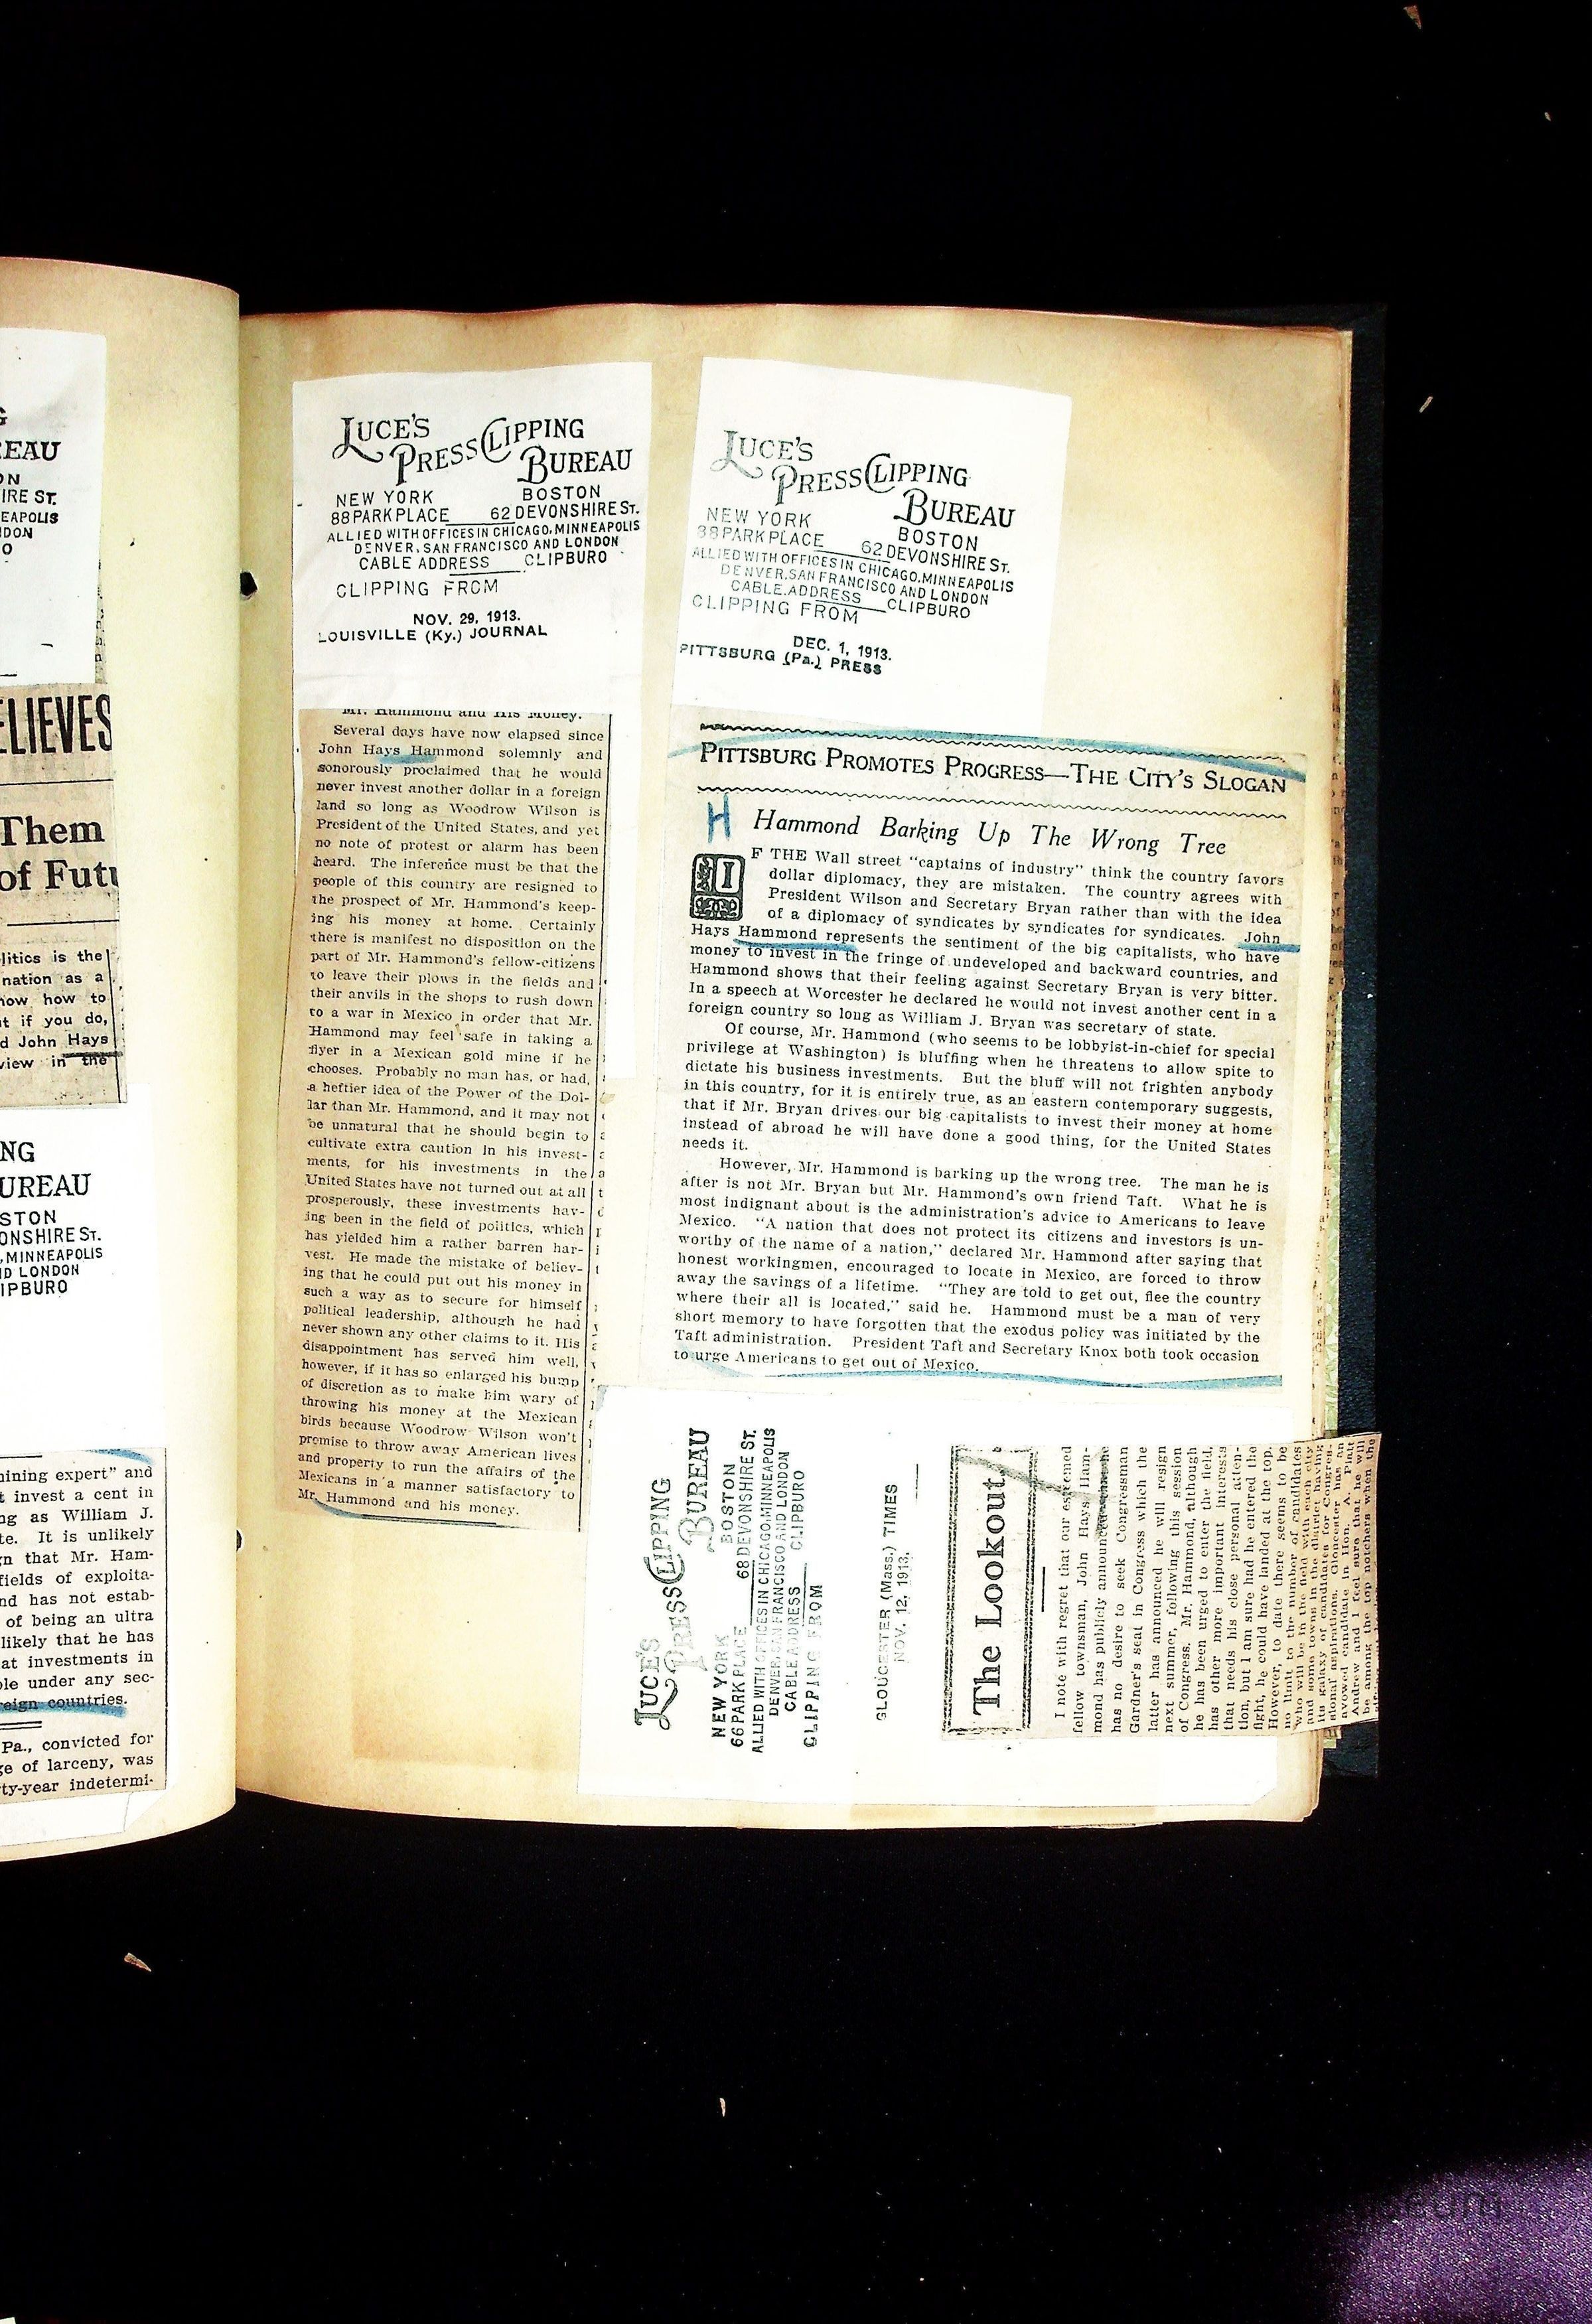 G
EAU
ON
IRE ST.
EAPOLIS
DON
O
ELIEVES
Them
of Futu
litics is the
nation as a
now how to
t if you do,
d John Hays
view in the
NG
UREAU
STON
ONSHIRE ST.
, MINNEAPOLIS
D LONDON
IPBURO
ining expert" and
t invest a cent in
ng as William J.
te. It is unlikely
gn that Mr. Ham-
fields of exploita-
nd has not estab-
of being an ultra
likely that he has
at investments in
ble under any sec-
reign countries.
Pa., convicted for
ge of larceny, was
ty-year indetermi-
LUCE'S
PRESS CLIPPING
BUREAU
NEW YORK BOSTON
88 PARK PLACE 62 DEVONSHIRE ST.
ALLIED WITH OFFICES IN CHICAGO, MINNEAPOLIS
DENVER, SAN FRANCISCO AND LONDON
CABLE ADDRESS CLIPBURO
CLIPPING FROM
NOV. 29, 1913.
LOUISVILLE (Ky.) JOURNAL
Mr. Hammond and His Money.
Several days have now elapsed since
John Hays Hammond solemnly and
sonorously proclaimed that he would
never invest another dollar in a foreign
land so long as Woodrow Wilson is
President of the United States, and yet
no note of protest or alarm has been
heard. The inference must be that the
people of this country are resigned to
the prospect of Mr. Hammond's keep-
ing his money at home. Certainly
there is manifest no disposition on the
part of Mr. Hammond's fellow-citizens
to leave their plows in the fields and
their anvils in the shops to rush down
to a war in Mexico in order that Mr.
Hammond may feel safe in taking a
flyer in a Mexican gold mine if he
chooses. Probably no man has, or had,
a heftier idea of the Power of the Dol-
lar than Mr. Hammond, and it may not
be unnatural that he should begin to
cultivate extra caution in his invest-
ments, for his investments in the
United States have not turned out at all
prosperously, these investments hav-
ing been in the field of politics, which
has yielded him a rather barren har-
vest. He made the mistake of believ-
ing that he could put out his money in
such a way as to secure for himself
political leadership, although he had
never shown any other claims to it. His
disappointment has served him well,
however, if it has so enlarged his bump
of discretion as to make him wary of
throwing his money at the Mexican
birds because Woodrow Wilson won't
promise to throw away American lives
and property to run the affairs of the
Mexicans in a manner satisfactory to
Mr. Hammond and his money.
LUCE'S
PRESS CLIPPING
BUREAU
NEW YORK BOSTON
88 PARK PLACE 62 DEVONSHIRE ST.
ALLIED WITH OFFICES IN CHICAGO, MINNEAPOLIS
DENVER, SAN FRANCISCO AND LONDON
CABLE ADDRESS CLIPBURO
CLIPPING FROM
DEC. 1, 1913.
PITTSBURG (Pa.) PRESS
PITTSBURG PROMOTES PROGRESS—THE CITY'S SLOGAN
H
Hammond Barking Up The Wrong Tree
IF THE Wall street "captains of industry" think the country favors
dollar diplomacy, they are mistaken. The country agrees with
President Wilson and Secretary Bryan rather than with the idea
of a diplomacy of syndicates by syndicates for syndicates. John
Hays Hammond represents the sentiment of the big capitalists, who have
money to invest in the fringe of undeveloped and backward countries, and
Hammond shows that their feeling against Secretary Bryan is very bitter.
In a speech at Worcester he declared he would not invest another cent in a
foreign country so long as William J. Bryan was secretary of state.
Of course, Mr. Hammond (who seems to be lobbyist-in-chief for special
privilege at Washington) is bluffing when he threatens to allow spite to
dictate his business investments. But the bluff will not frighten anybody
in this country, for it is entirely true, as an eastern contemporary suggests,
that if Mr. Bryan drives our big capitalists to invest their money at home
instead of abroad he will have done a good thing, for the United States
needs it.
However, Mr. Hammond is barking up the wrong tree. The man he is
after is not Mr. Bryan but Mr. Hammond's own friend Taft. What he is
most indignant about is the administration's advice to Americans to leave
Mexico. "A nation that does not protect its citizens and investors is un-
worthy of the name of a nation," declared Mr. Hammond after saying that
honest workingmen, encouraged to locate in Mexico, are forced to throw
away the savings of a lifetime. "They are told to get out, flee the country
where their all is located," said he. Hammond must be a man of very
short memory to have forgotten that the exodus policy was initiated by the
Taft administration. President Taft and Secretary Knox both took occasion
to urge Americans to get out of Mexico.
LUCE'S
PRESS CLIPPING
BUREAU
NEW YORK BOSTON
66 PARK PLACE 68 DEVONSHIRE ST.
ALLIED WITH OFFICES IN CHICAGO, MINNEAPOLIS
DENVER, SAN FRANCISCO AND LONDON
CABLE ADDRESS CLIPBURO
CLIPPING FROM
GLOUCESTER (Mass.) TIMES
NOV. 12, 1913.
The Lookout
I note with regret that our esteemed
fellow townsman, John Hays Ham-
mond has publicly announced that he
has no desire to seek Congressman
Gardner's seat in Congress which the
latter has announced he will resign
next summer, following this session
of Congress. Mr. Hammond, although
he has been urged to enter the field,
has other more important interests
that needs his close personal atten-
tion, but I am sure had he entered the
fight, he could have landed at the top.
However, to date there seems to be
no limit to the number of candidates
who will be in the field with each city
and some towns in the district having
its galaxy of candidates for Congres-
sional aspirations. Gloucester has an
avowed candidate in Hon. A. Piatt
Andrew and I feel sure that he will
be among the top notchers when the